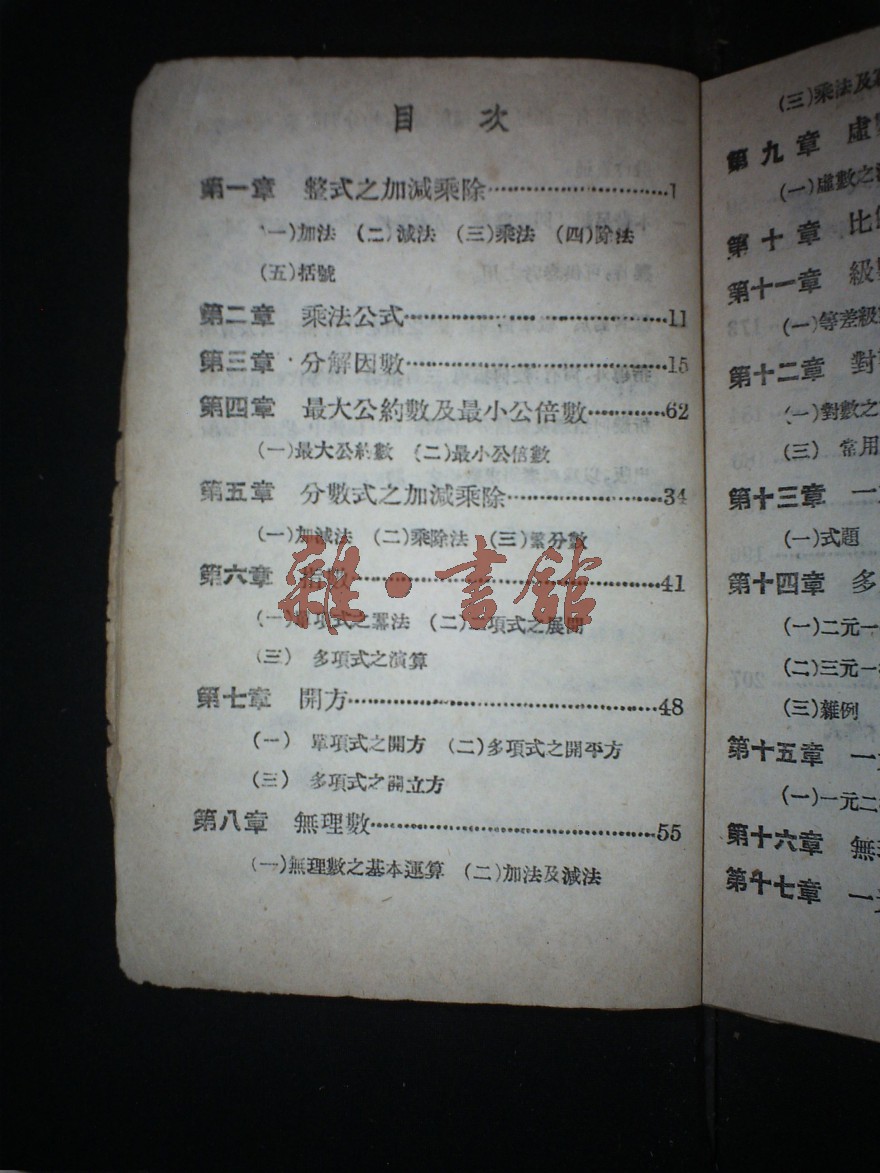 目 次
第一章 整式之加減乘除……………………1
(一)加法 (二)減法 (三)乘法 (四)除法
(五)括號
第二章 乘法公式……………………11
第三章 分解因數……………………15
第四章 最大公約數及最小公倍數…………62
(一)最大公約數 (二)最小公倍數
第五章 分數式之加減乘除…………………34
(一)加減法 (二)乘除法 (三)繁分數
第六章 指數……………………41
(一)單項式之冪法 (二)二項式之展開
(三) 多項式之演算
第七章 開方……………………48
(一) 單項式之開方 (二)多項式之開平方
(三) 多項式之開立方
第八章 無理數……………………55
(一)無理數之基本運算 (二)加法及減法
雜·書館
(三)乘法及
第九章 虛
(一)虛數之
第十章 比
第十一章 級
(一)等差級
第十二章 對
(一)對數之
(三) 常用
第十三章 一
(一)式題
第十四章 多
(一)二元一
(二)三元一
(三)雜例
第十五章 一
(一)一元二
第十六章 無
第十七章 一